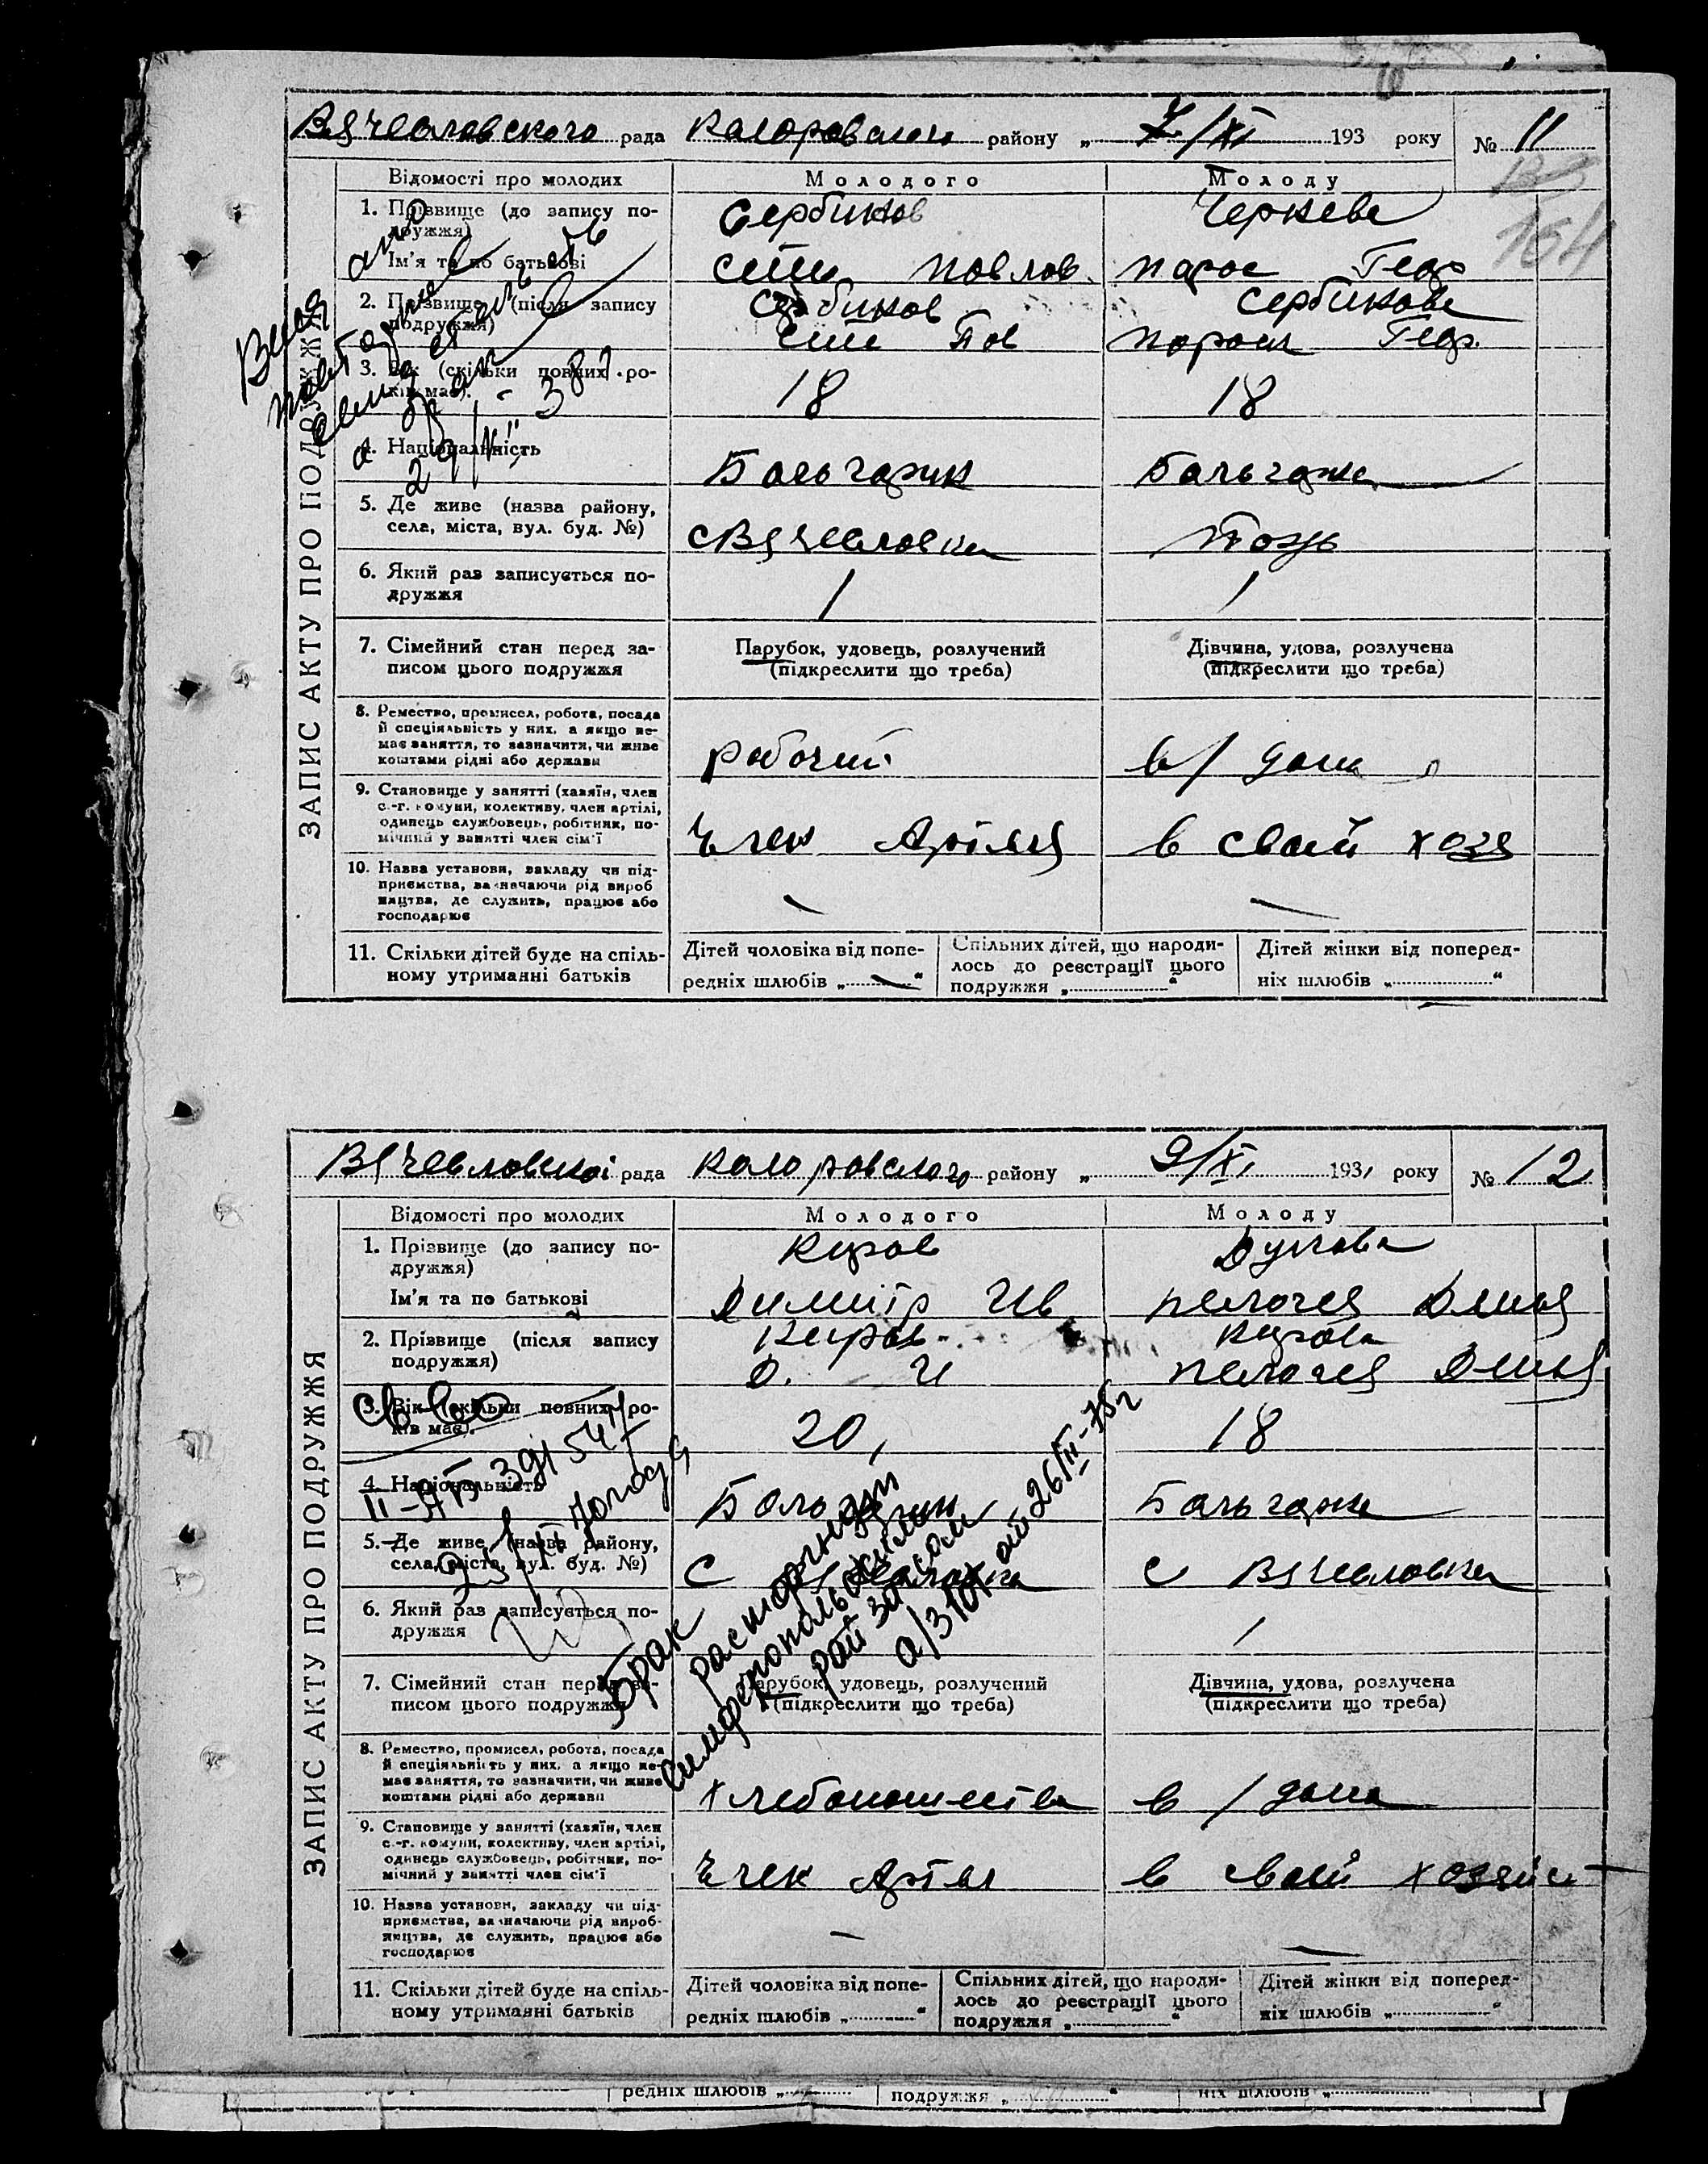 Вячеславского рада Коларовского району „ 7/XI 193 року № 11
Відомості про молодих Молодого Молоду
ЗАПИС АКТУ ПРО ПОДРУЖЖЯ
1. Прізвище (до запису подружжя) Сербинов Чернева
Ім'я та по батькові Павлов. Геор
2. Прізвище (після запису подружжя) Сербинов Сербинова
Пав Геор.
3. Вік (скільки повних років має). 18 18
4. Національність Больгарин Бальгарка
5. Де живе (назва району, села, міста, вул. буд. №) с Вячеславка Тожь
6. Який раз записується подружжя 1 1
7. Сімейний стан перед записом цього подружжя
Парубок, удовець, розлучений (підкреслити що треба)
Дівчина, удова, розлучена (підкреслити що треба)
8. Ремество, промисел, робота, посада й спеціяльність у них, а якщо немає заняття, то зазначити, чи живе коштами рідні або держави
рабочий в/ дома
9. Становище у занятті (хазяїн, член с.-г. комуни, колективу, член артілі, одинець службовець, робітник, помічний у занятті член сім'ї
Член Артели в свой хозя
10. Назва установи, закладу чи підприємства, зазначаючи рід виробництва, де служить, працює або господарює — —
11. Скільки дітей буде на спільному утриманні батьків
Дітей чоловіка від попередніх шлюбів „ — “
Спільних дітей, що народилось до реєстрації цього подружжя „ “
Дітей жінки від попередніх шлюбів „ “
Вячеславской рада Коларовского району „ 9/XI 1931 року № 12
Відомості про молодих Молодого Молоду
ЗАПИС АКТУ ПРО ПОДРУЖЖЯ
1. Прізвище (до запису подружжя) Киров
Ім'я та по батькові Димитр Ив Пелагея Дмит
2. Прізвище (після запису подружжя) Киров Кирова
Д. И Пелагея Дмит
3. Вік (скільки повних років має). 20, 18
Св-во
II-АБ 391547
4. Національність Больгарин Бальгарка
5. Де живе (назва району, села, міста, вул. буд. №) с Вячеславка с Вячеславка
6. Який раз записується подружжя 1
Брак расторгнут
Симферопольским
рай загсом
а/з 101 от 26/III-75г
7. Сімейний стан перед записом цього подружжя
Парубок, удовець, розлучений (підкреслити що треба)
Дівчина, удова, розлучена (підкреслити що треба)
8. Ремество, промисел, робота, посада й спеціяльність у них, а якщо немає заняття, то зазначити, чи живе коштами рідні або держави
в / дома
9. Становище у занятті (хазяїн, член с.-г. комуни, колективу, член артілі, одинець службовець, робітник, помічний у занятті член сім'ї
Член Артели в свой хозяйст
10. Назва установи, закладу чи підприємства, зазначаючи рід виробництва, де служить, працює або господарює — —
11. Скільки дітей буде на спільному утриманні батьків
Дітей чоловіка від попередніх шлюбів „ “
Спільних дітей, що народилось до реєстрації цього подружжя „ “
Дітей жінки від попередніх шлюбів „ “
редніх шлюбів „ “ подружжя „ “ ніх шлюбів „